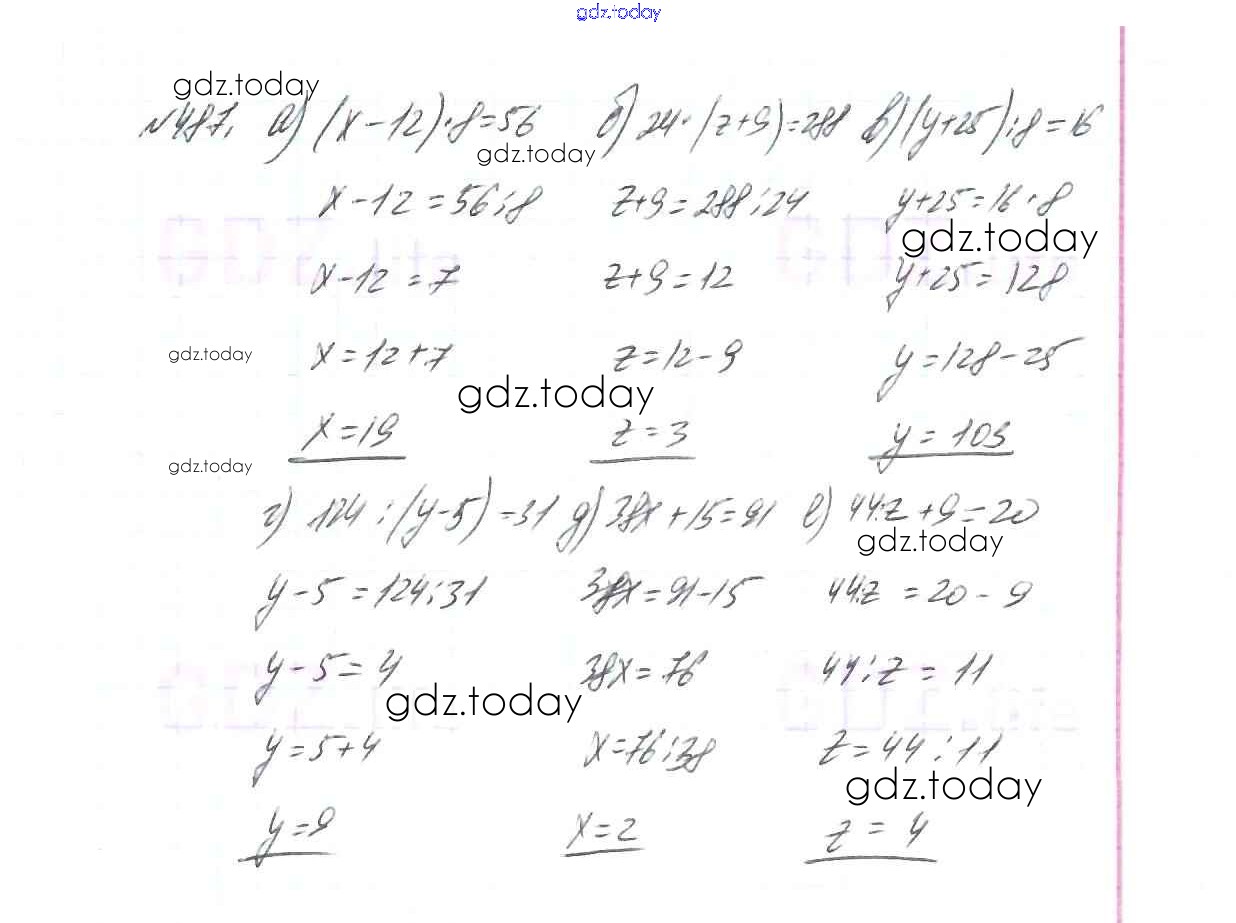 gdz.today
gdz.today
№487. а) (x-12)·8=56 б) 24·(z+9)=288 в) (y+25):8=16
gdz.today
x-12=56:8 z+9=288:24 y+25=16·8
gdz.today
x-12=7 z+9=12 y+25=128
gdz.today
x=12+7 z=12-9 y=128-25
gdz.today
x=19 z=3 y=103
gdz.today
г) 124:(y-5)=31 д) 38x+15=91 е) 44:z+9=20
gdz.today
y-5=124:31 38x=91-15 44:z=20-9
y-5=4 38x=76 44:z=11
gdz.today
y=5+4 x=76:38 z=44:11
gdz.today
y=9 x=2 z=4